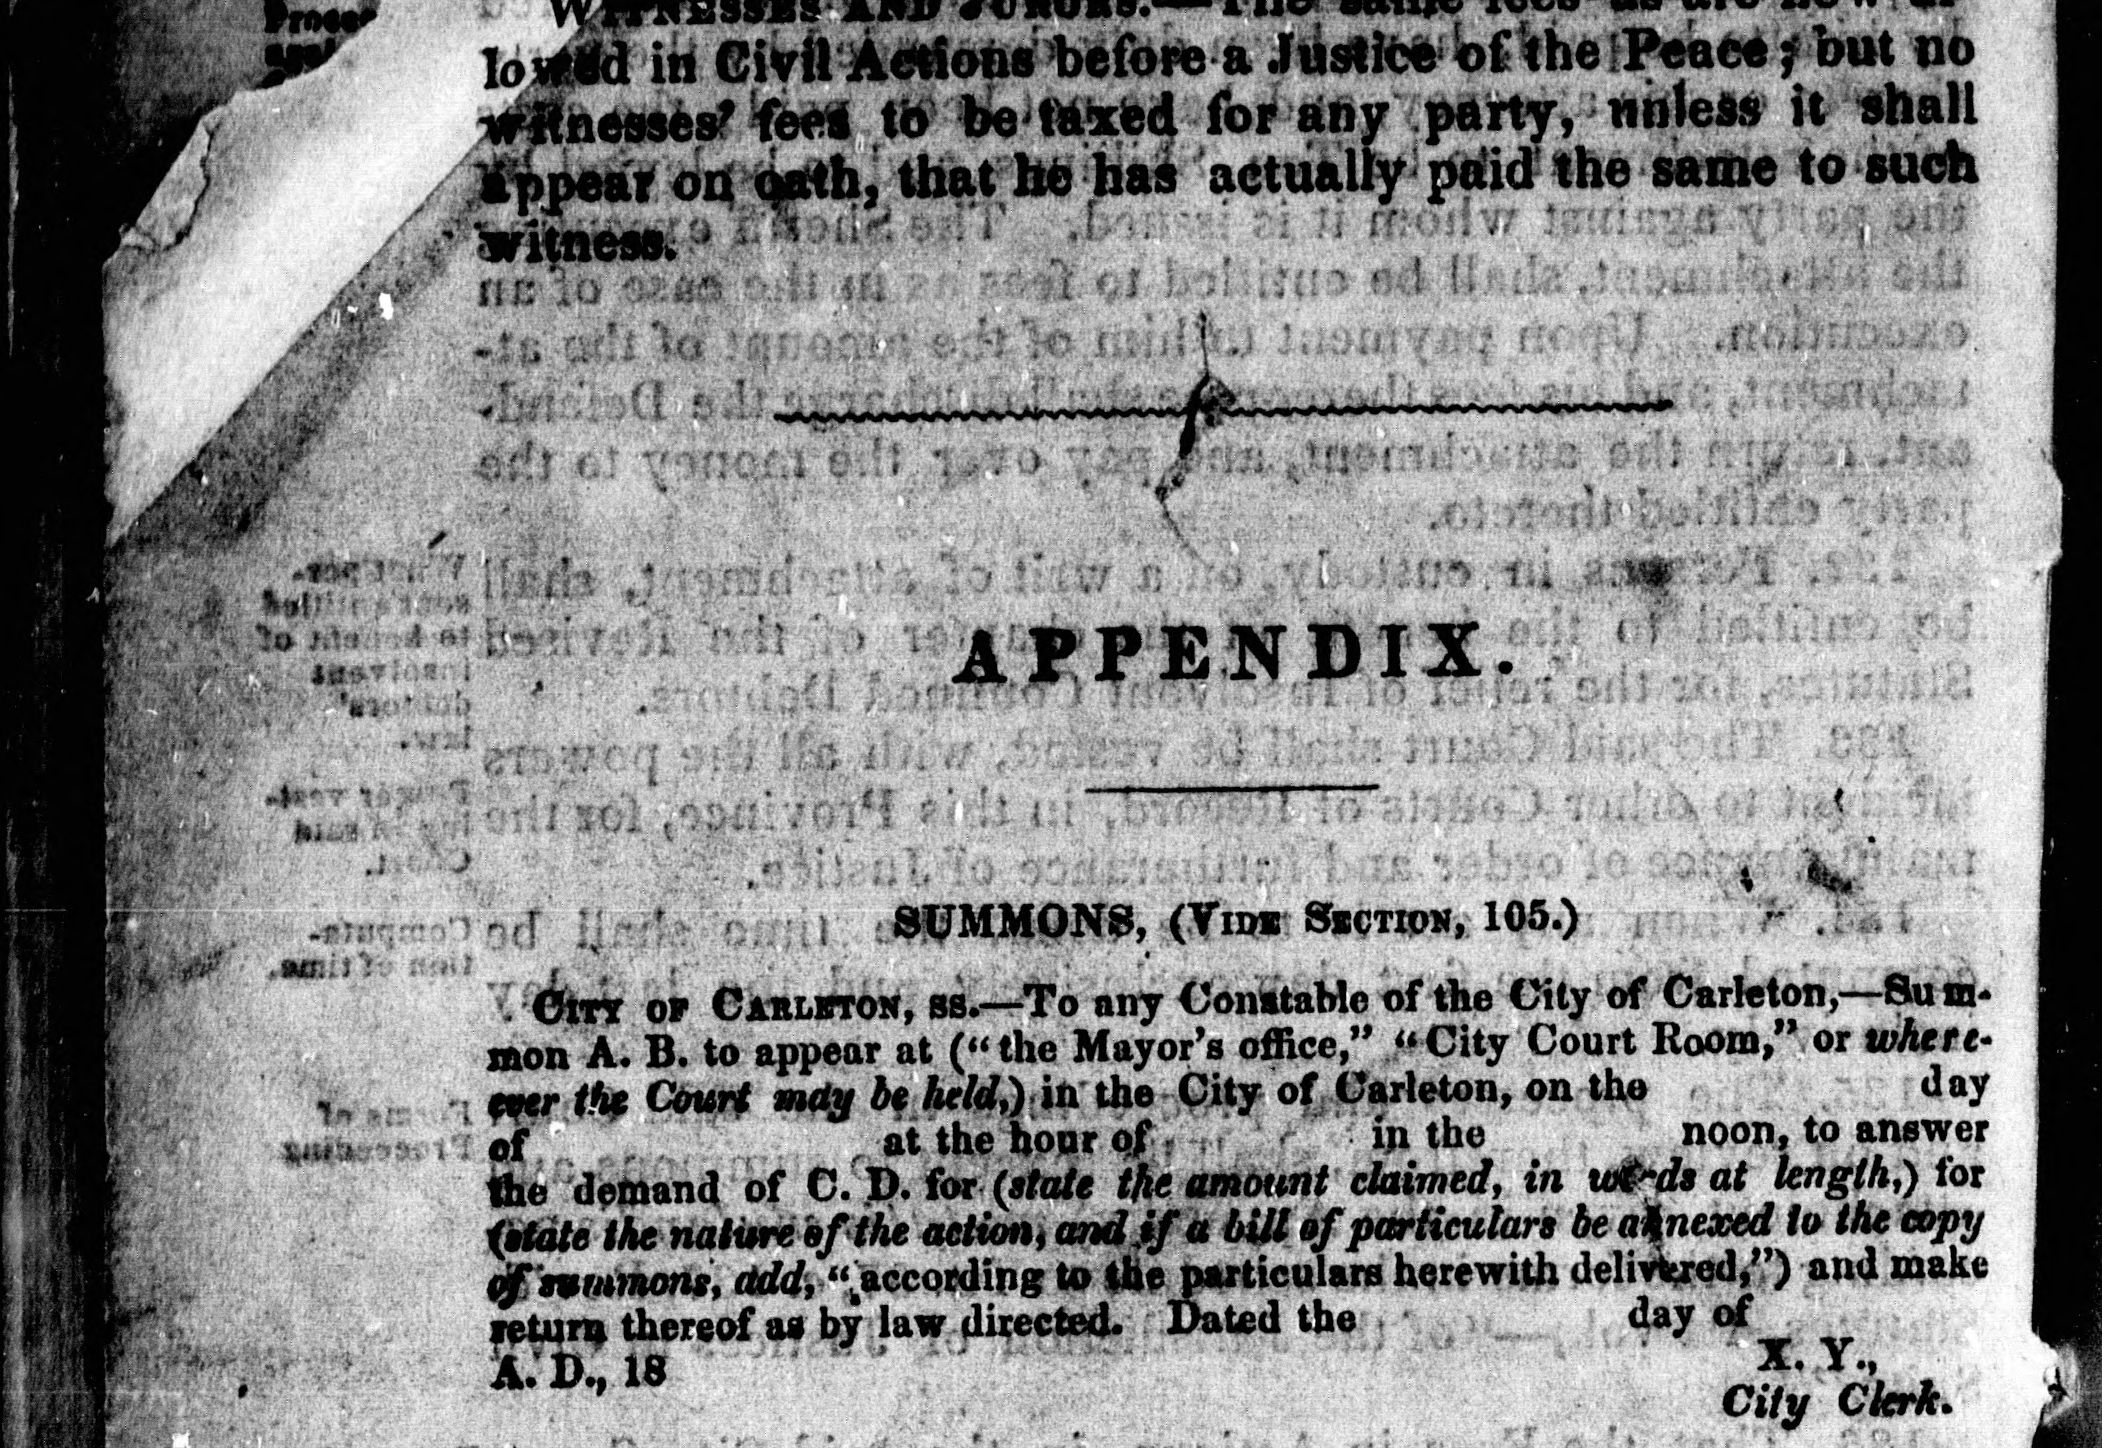 WITNESSES AND JURORS.—The same fees as are now al-
lowed in Civil Actions before a Justice of the Peace; but no
witnesses' fees to be taxed for any party, unless it shall
appear on oath, that he has actually paid the same to such
witness.
APPENDIX.
SUMMONS, (VIDE SECTION, 105.)
CITY OF CARLETON, ss.—To any Constable of the City of Carleton,—Sum-
mon A. B. to appear at ("the Mayor's office," "City Court Room," or where-
ever the Court may be held,) in the City of Carleton, on the day
of at the hour of in the noon, to answer
the demand of C. D. for (state the amount claimed, in words at length,) for
(state the nature of the action, and if a bill of particulars be annexed to the copy
of summons, add, "according to the particulars herewith delivered,") and make
return thereof as by law directed. Dated the day of
A. D., 18
X. Y.,
City Clerk.